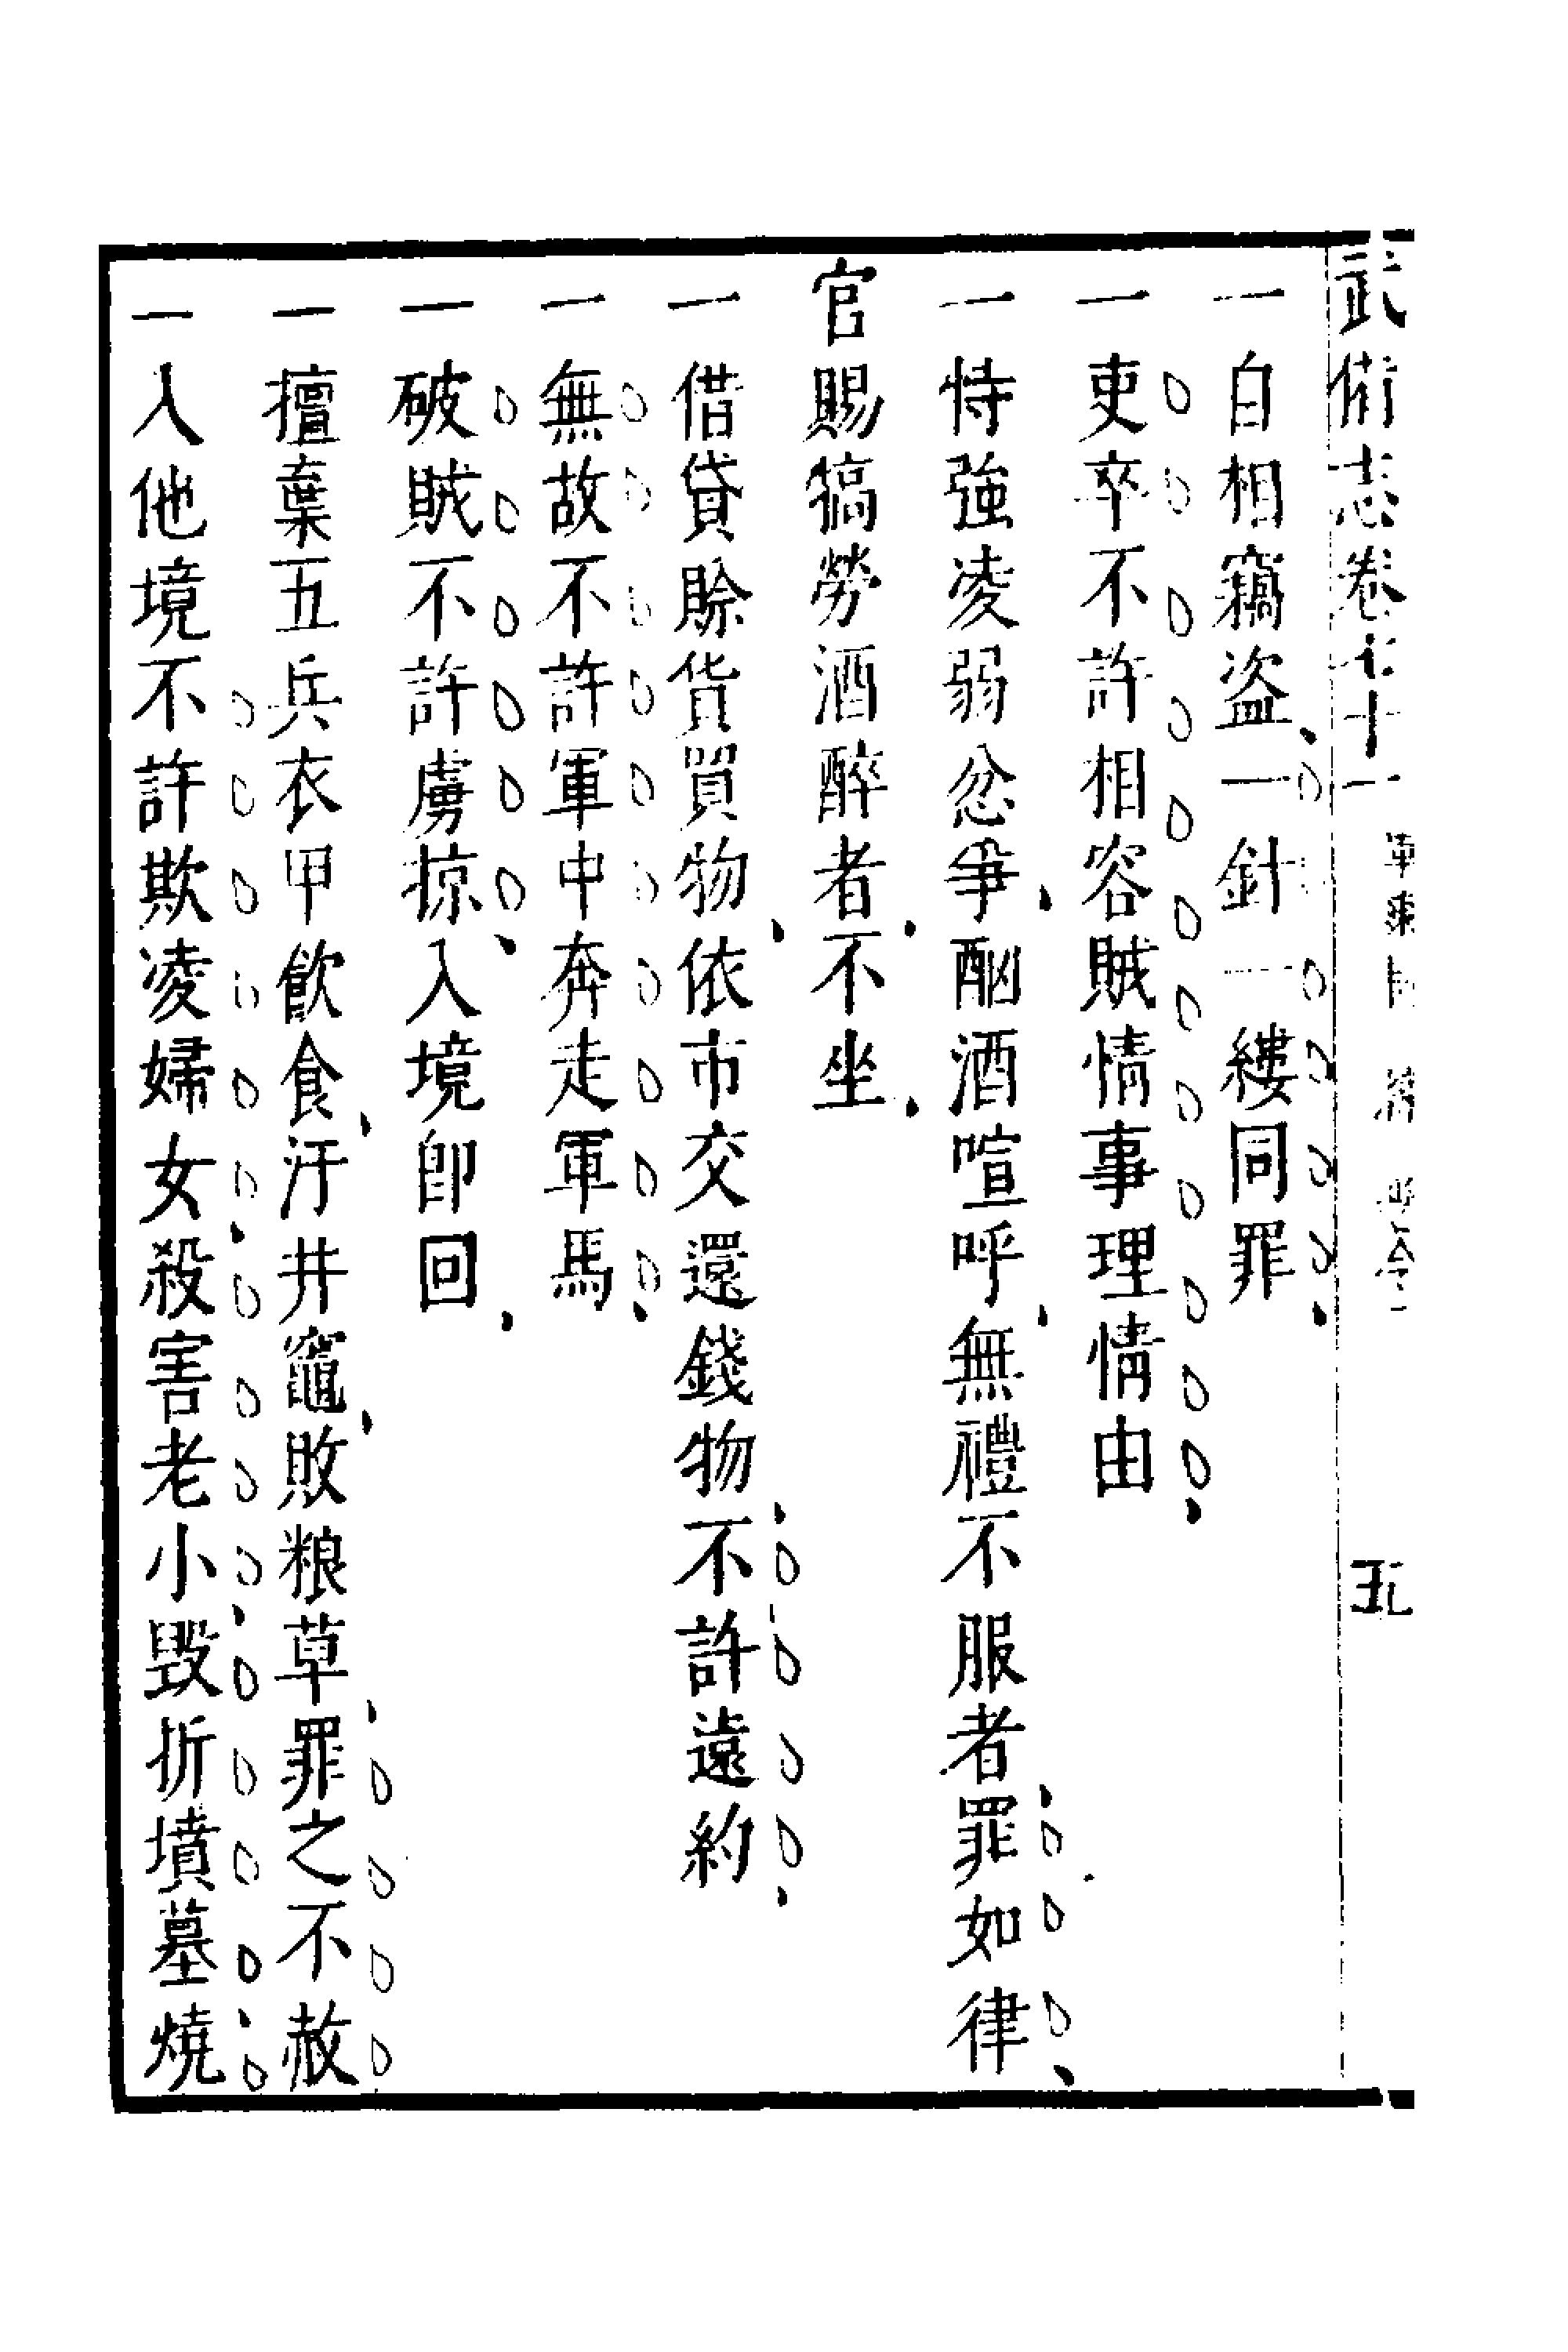 武備志卷七十一 五
一自相竊盜一針一縷同罪
一吏卒不許相容賊情事理情由
一恃強凌弱忿爭酗酒喧呼無禮不服者罪如律
官賜犒勞酒醉者不坐
一借貸賒貨買物依市交還錢物不許遠約
一無故不許軍中奔走軍馬
一破賊不許虜掠入境卽回
一擅棄五兵衣甲飲食汙井竈敗粮草罪之不赦
一入他境不許欺凌婦女殺害老小毀折墳墓燒